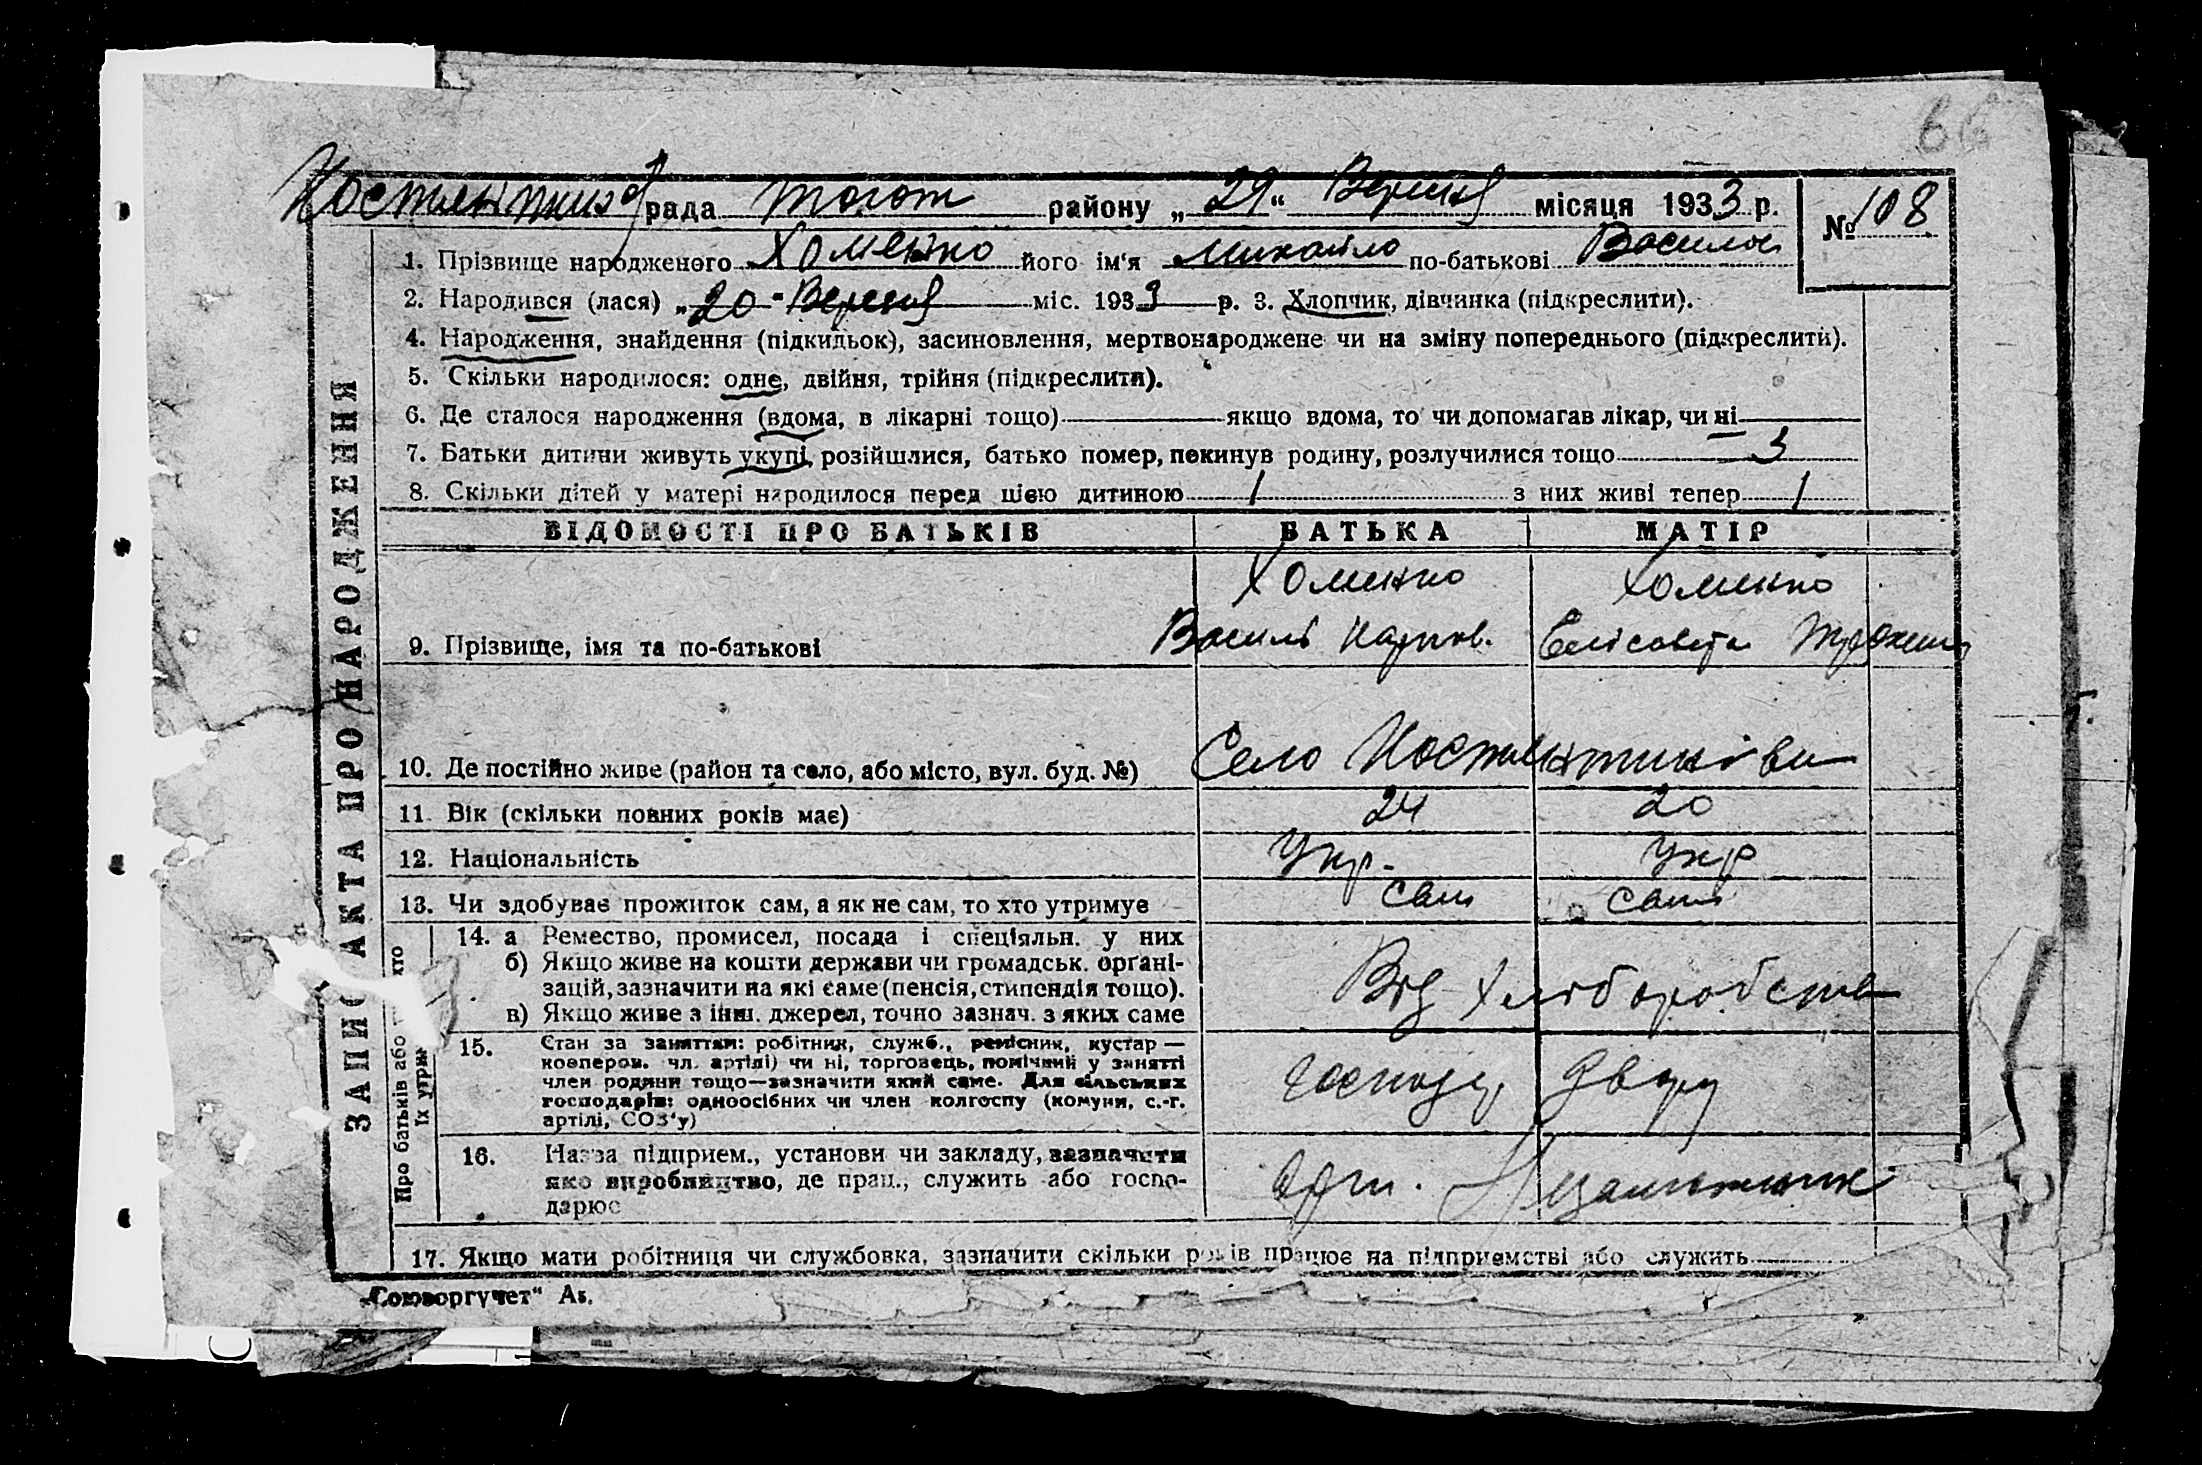 66
рада району „29“ Вересня місяця 1933 р. № 108
1. Прізвище народженого Хоменко його ім'я Михайло по-батькові Василов
2. Народився (лася) „20" Вересня міс. 1933 р. 3. Хлопчик, дівчинка (підкреслити).
4. Народження, знайдення (підкидьок), засиновлення, мертвонароджене чи на зміну попереднього (підкреслити).
5. Скільки народилося: одне, двійня, трійня (підкреслити).
6. Де сталося народження (вдома, в лікарні тощо) якщо вдома, то чи допомагав лікар, чи ні
7. Батьки дитини живуть укупі, розійшлися, батько помер, покинув родину, розлучилися тощо 3
8. Скільки дітей у матері народилося перед цією дитиною 1 з них живі тепер 1
ЗАПИС АКТА ПРО НАРОДЖЕННЯ
ВІДОМОСТІ ПРО БАТЬКІВ БАТЬКА МАТІР
Хоменко Хоменко
9. Прізвище, імя та по-батькові Василь Карпов. Єлісавета
10. Де постійно живе (район та село, або місто, вул. буд. №) Село Костянтинівка
11. Вік (скільки повних років має) 24 20
12. Національність Укр. Укр
13. Чи здобуває прожиток сам, а як не сам, то хто утримує сам сама
Про батьків або хто
їх утрим
14. а Ремество, промисел, посада і спеціяльн. у них
б) Якщо живе на кошти держави чи громадськ. органі-
зацій, зазначити на які саме (пенсія, стипендія тощо).
в) Якщо живе з інш. джерел, точно зазнач. з яких саме
Від Хліборобства
15. Стан за заняттям: робітник, служб., ремісник, кустар —
кооперов. чл. артілі) чи ні, торговець, помічний у занятті
член родини тощо—зазначити який саме. Для сільських
господарів: одноосібних чи член колгоспу (комуни, с.-г.
артілі, СОЗ'у)
Господар двору
16. Назва підприєм., установи чи закладу, зазначити
яко виробництво, де прац., служить або госпо-
дарює
Арт. Незаможник
17. Якщо мати робітниця чи службовка, зазначити скільки років працює на підприємстві або служить
„Союзоргучет“